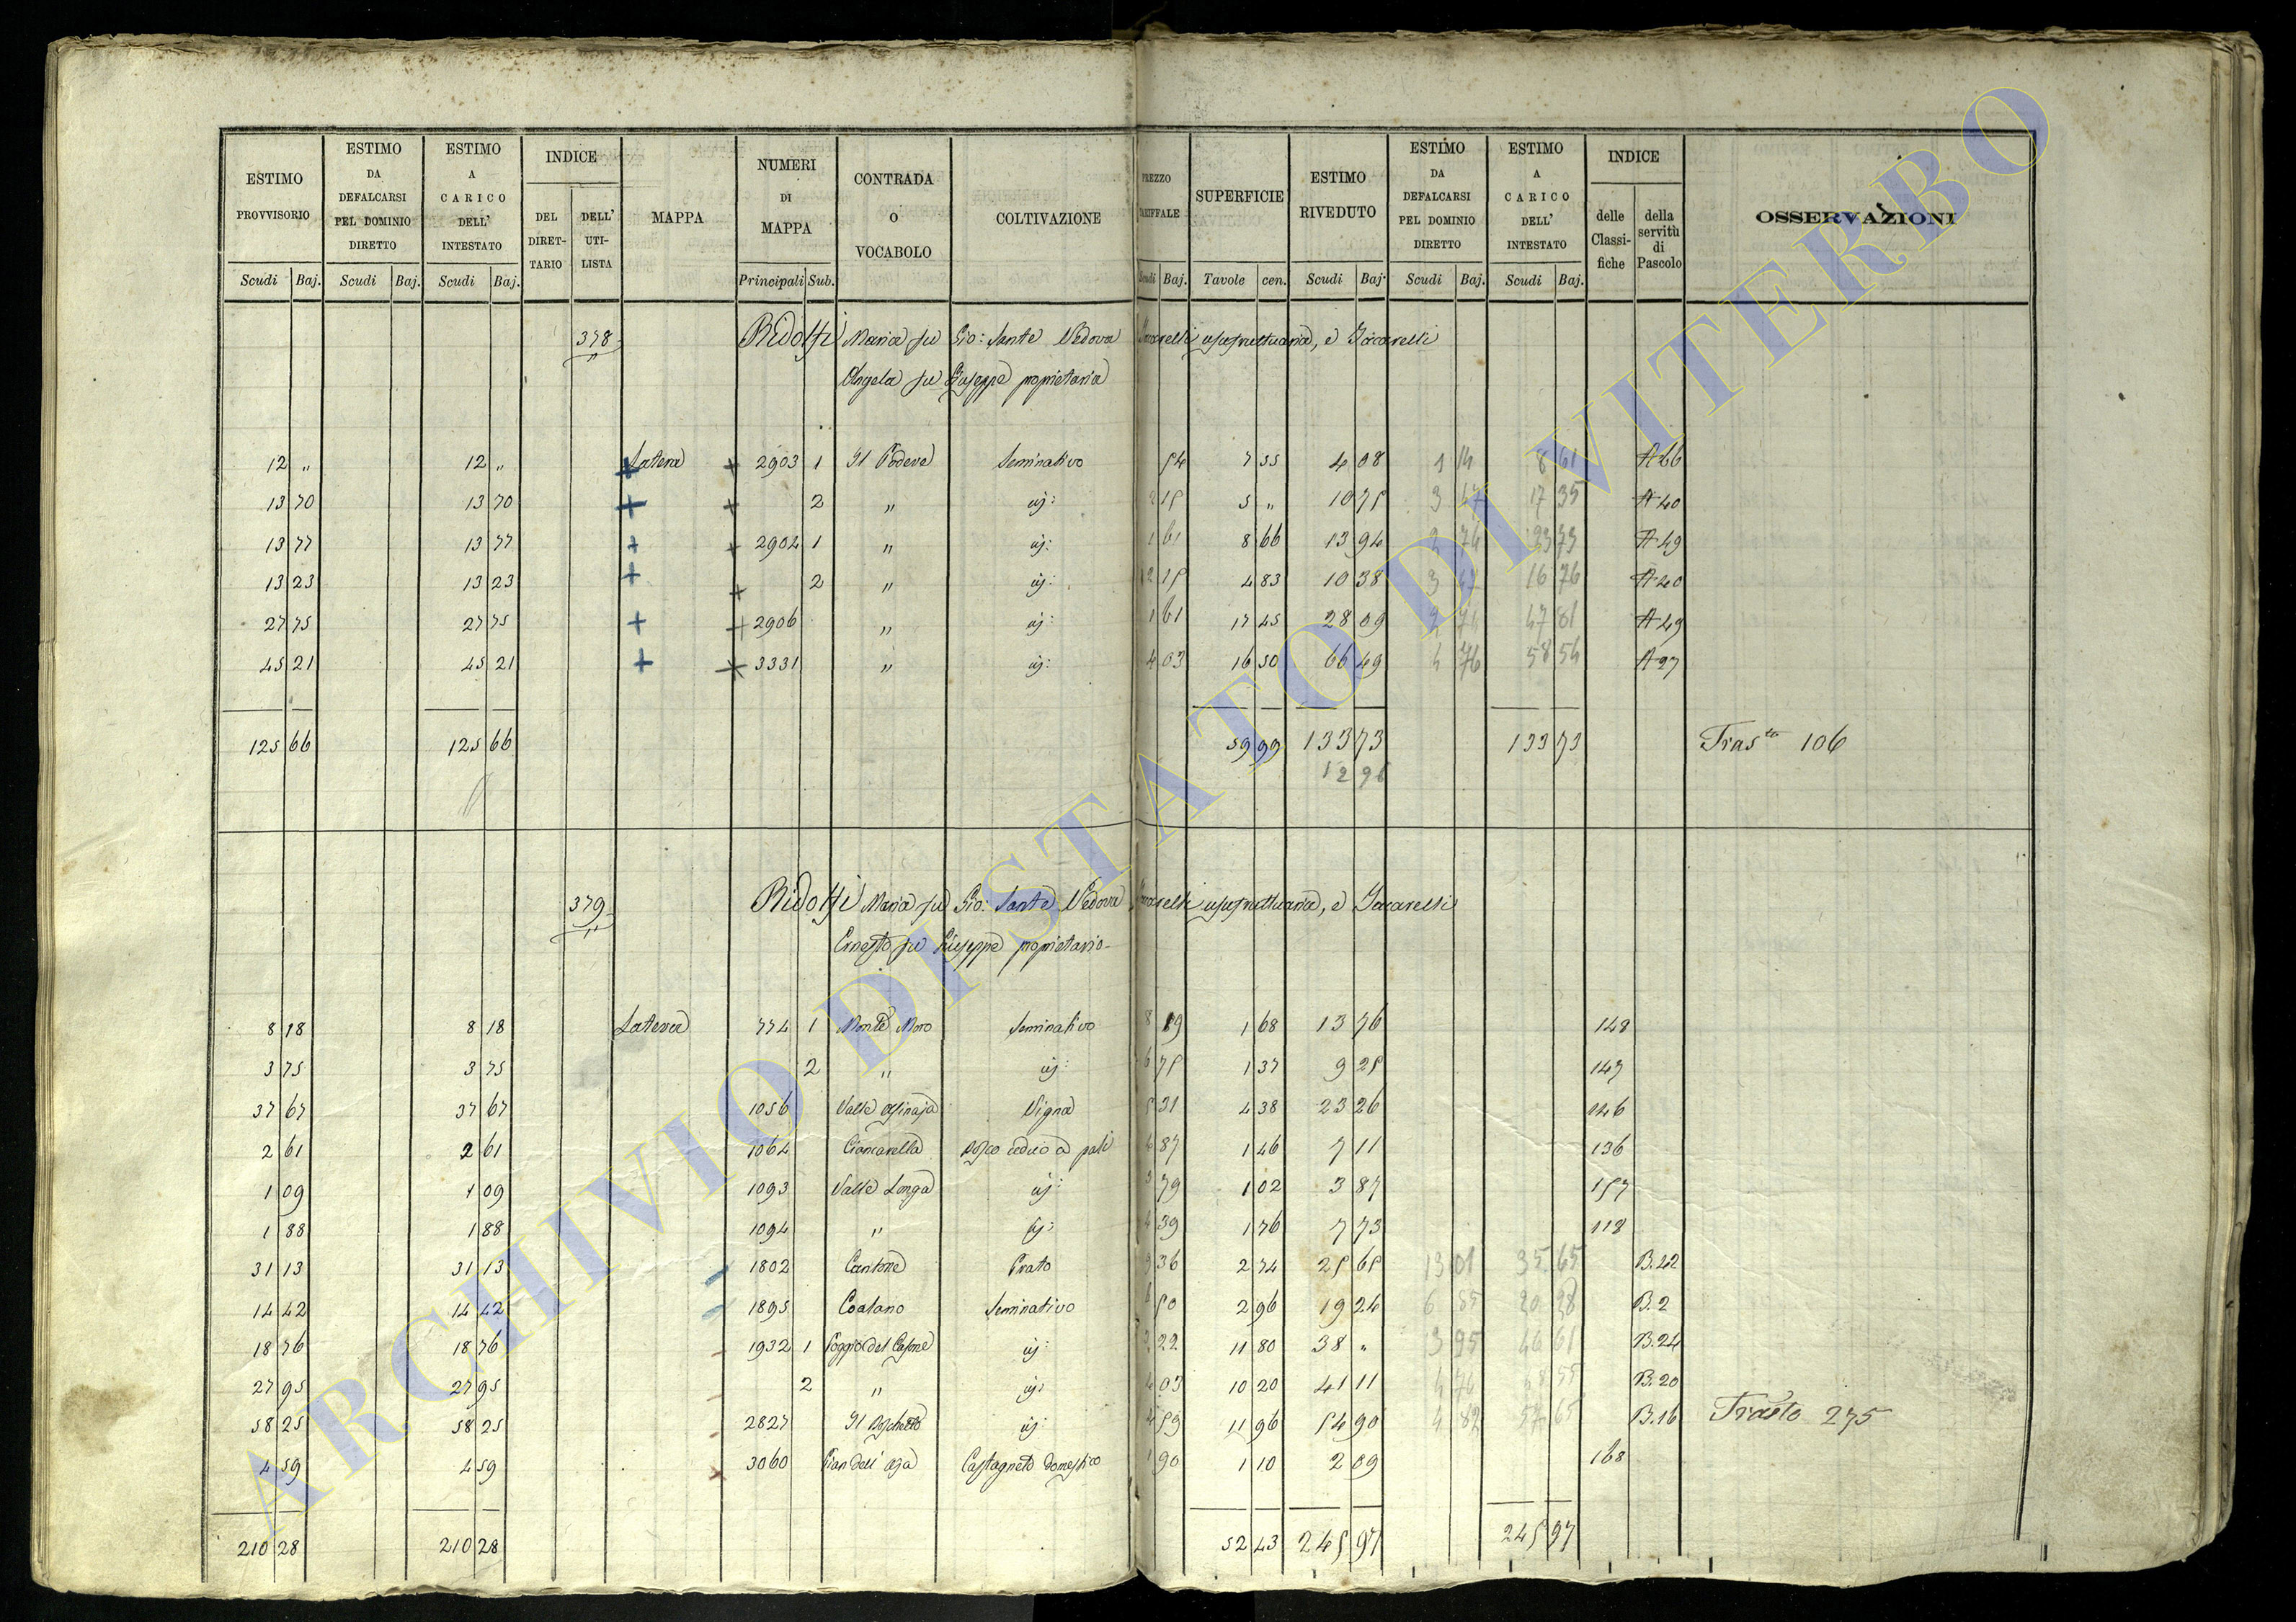 ESTIMO PROVVISORIO | ESTIMO DA DEFALCARSI PEL DOMINIO DIRETTO | ESTIMO A CARICO DELL' INTESTATO | INDICE DEL DIRET-TARIO | DELL' UTI-LISTA | MAPPA | NUMERI DI MAPPA | CONTRADA O VOCABOLO | COLTIVAZIONE | PREZZO TARIFFALE | SUPERFICIE | ESTIMO RIVEDUTO | ESTIMO DA DEFALCARSI PEL DOMINIO DIRETTO | ESTIMO A CARICO DELL' INTESTATO | INDICE delle Classi-fiche | della servitù di Pascolo | OSSERVAZIONI
Scudi Baj. | Scudi Baj. | Scudi Baj. | Principali Sub. | Scudi Baj. | Tavole cen. | Scudi Baj. | Scudi Baj. | Scudi Baj.
378 Ridolfi Maria fu Gio: Sante Vedova usufruttuaria, e Jacarelli
Angela fu Giuseppe proprietaria
12 „ 12 „ Latera + 2903 1 Il Podere Seminativo 54 7 55 4 08 1 14 8 61 A 66
13 70 13 70 + + 2 „ id: 2 15 5 „ 10 75 3 17 35 A 40
13 77 13 77 + + 2904 1 „ id: 1 61 8 66 13 94 2 74 23 73 A 49
13 23 13 23 + + 2 „ id: 2 15 4 83 10 38 3 16 76 A 40
27 75 27 75 + + 2906 „ id: 1 61 17 45 28 09 2 74 47 81 A 49
45 21 45 21 + + 3331 „ id: 4 03 16 50 66 49 4 76 58 54 A 27
125 66 125 66 59 99 133 73 133 73 Tras.to 106
12 96
379 Ridolfi Maria fu Gio: Sante Vedova usufruttuaria, e Jacarelli
Ernesto fu Giuseppe proprietario
8 18 8 18 Latera 774 1 Monte Moro Seminativo 8 19 1 68 13 76 148
3 75 3 75 2 „ id: 6 75 1 37 9 25 147
37 67 37 67 1056 Valle Vigna 5 31 4 38 23 26 146
2 61 2 61 1064 Ciancarella Bosco ceduo a pali 4 87 1 46 7 11 136
1 09 1 09 1093 Valle Longa id: 3 79 1 02 3 87 157
1 88 1 88 1094 „ id: 4 39 1 76 7 73 118
31 13 31 13 1802 Cantone Prato 9 36 2 74 25 65 13 01 35 65 B. 22
14 42 14 42 1895 Seminativo 6 50 2 96 19 24 6 20 28 B. 2
18 76 18 76 1932 1 Poggio del Casone id: 3 22 11 80 38 „ 3 95 46 61 B. 24
27 95 27 95 2 „ id: 4 03 10 20 41 11 4 74 55 B. 20
58 25 58 25 2827 Il Boschetto id: 4 59 11 96 54 90 4 82 57 65 B. 16 Tras.to 275
4 59 4 59 3060 Castagneto domestico 1 90 1 10 2 09 168
210 28 210 28 52 43 245 97 245 97
ARCHIVIO DI STATO DI VITERBO